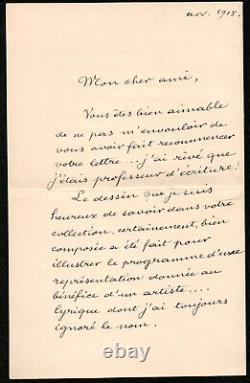 nov. 1918.
Mon cher ami,
Vous êtes bien aimable
de ne pas m'envouloir de
vous avoir fait recommencer
votre lettre... j'ai rêvé que
j'étais professeur d'écriture!
Le dessin que je suis
heureux de savoir dans votre
collection, certainement, bien
composée a été fait pour
illustrer le programme d'une
représentation donnée au
bénéfice d'un artiste....
lyrique dont j'ai toujours
ignoré le nom.
thebookmerchant.com